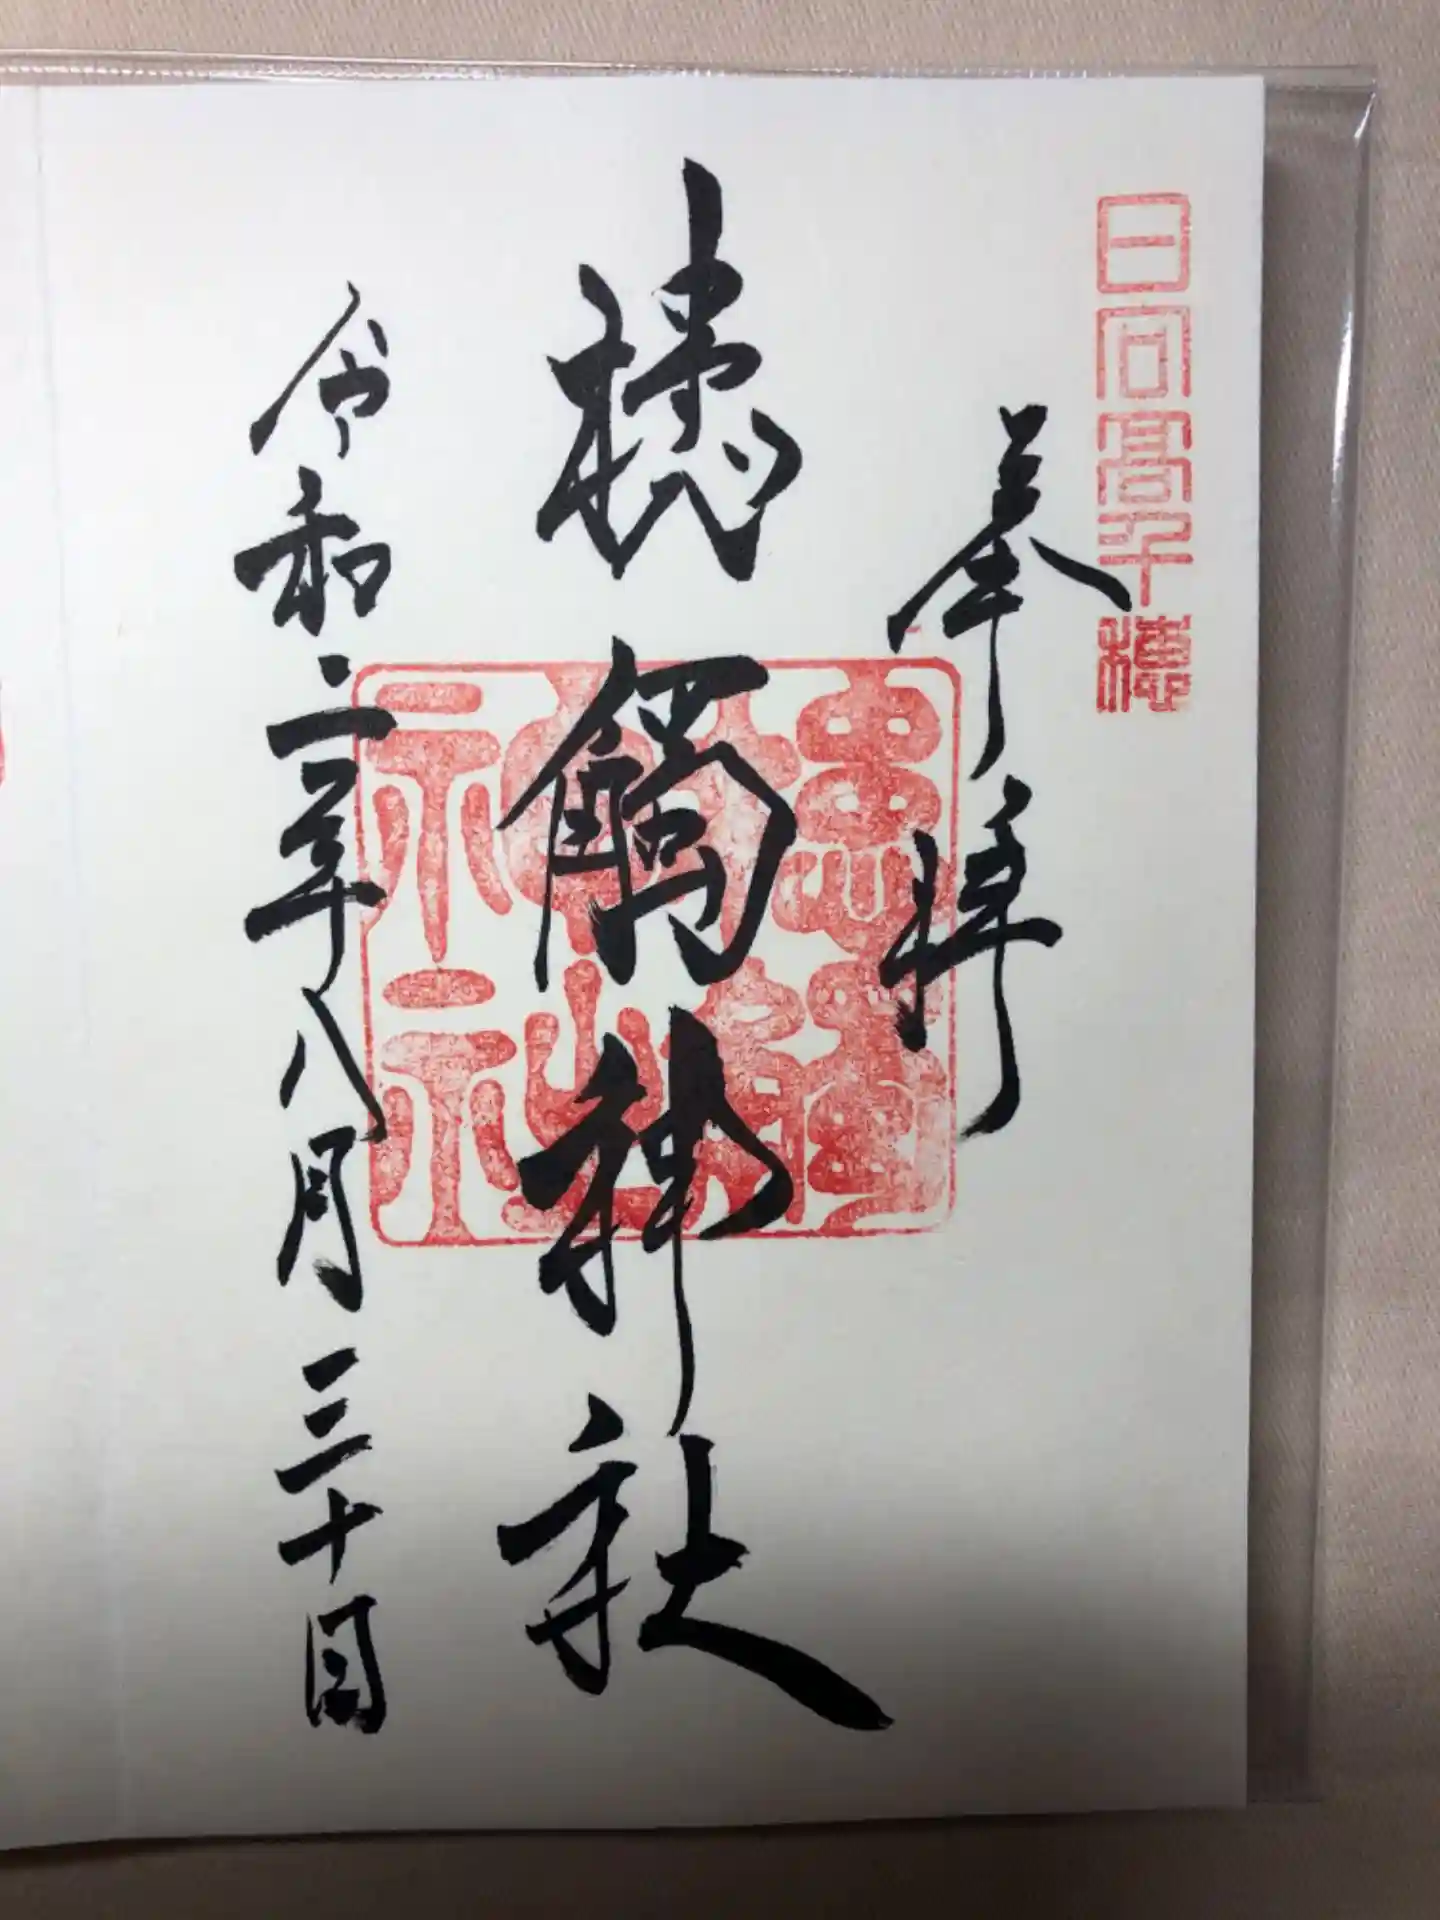 日向髙千穂
奉拝
槵觸神社
令和二年八月三十日
槵觸
神社